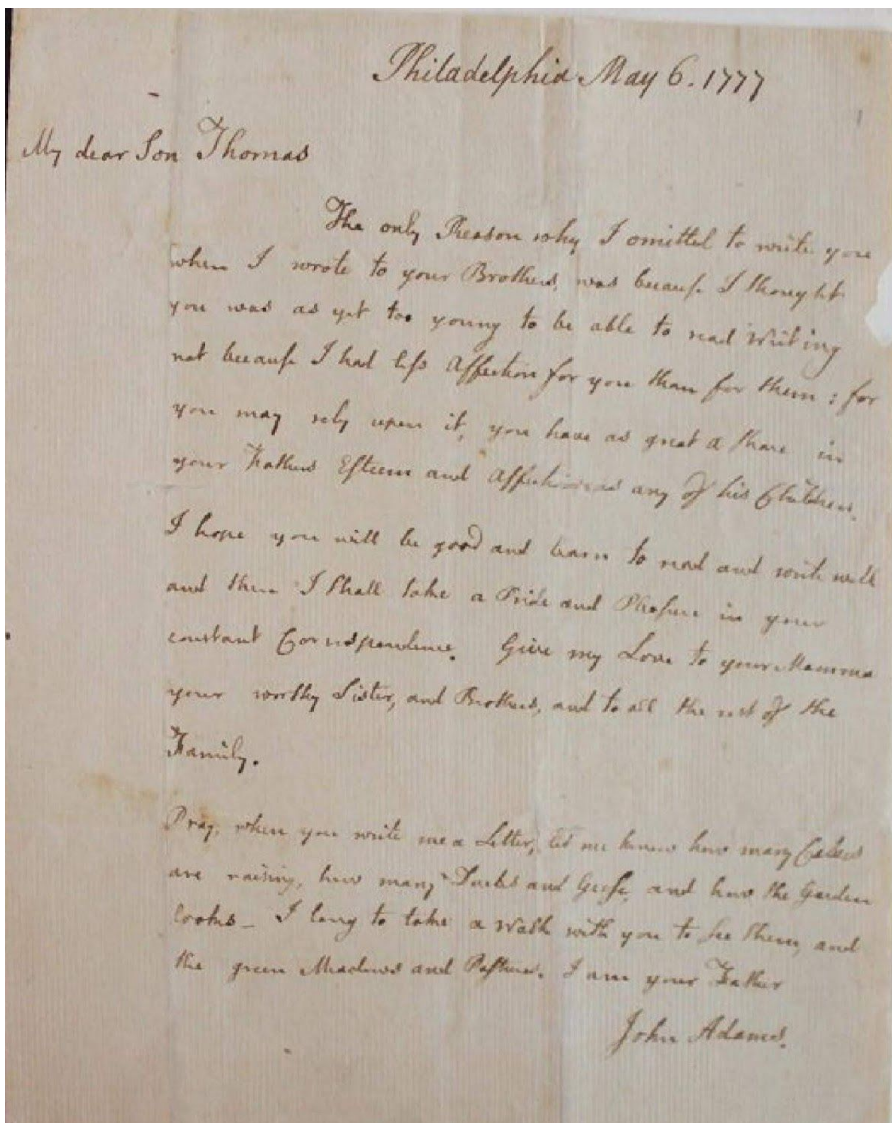 Philadelphia May 6. 1777
My dear Son Thomas
The only Reason why I omitted to write you
when I wrote to your Brothers, was because I thought
you was as yet too young to be able to read Writing
not because I had less Affection for you than for them: for
you may rely upon it, you have as great a share in
your Fathers Esteem and Affection as any of his Children.
I hope you will be good and learn to read and write well
and then I shall take a Pride and Pleasure in your
constant Correspondence. Give my Love to your Mamma
your worthy Sister, and Brothers, and to all the rest of the
Family.
Pray, when you write me a Letter, let me know how many Calves
are raising, how many Ducks and Geese, and how the Garden
looks_ I long to take a Walk with you to see them, and
the green Meadows and Pastures. I am your Father
John Adams.